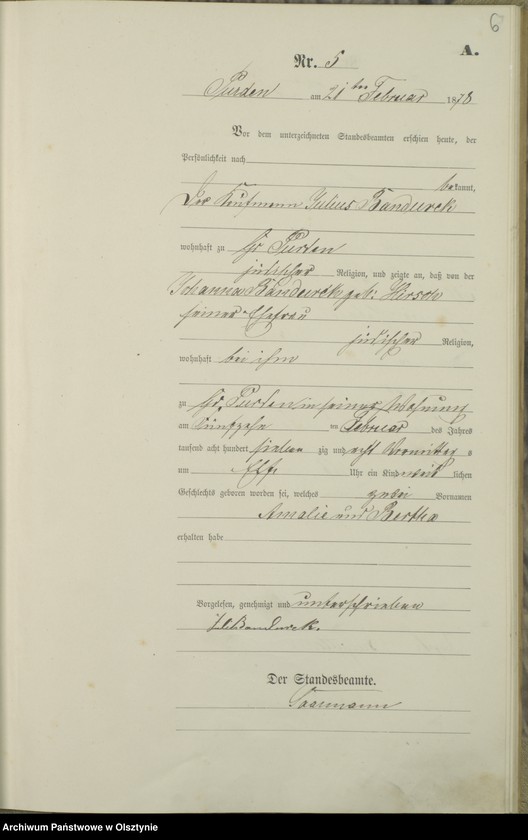 6
A.
Nr. 5
Purden am 21ten Februar 1878
Vor dem unterzeichneten Standesbeamten erschien heute, der
Persönlichkeit nach
bekannt,
Der Kaufmann Julius Bandurck
wohnhaft zu Gr Purden
jüdischer Religion, und zeigte an, daß von der
Johanna Bandurck geb: Hirsch
seiner Ehefrau
jüdischer Religion,
wohnhaft bei ihm
zu Gr. Purden in seiner Wohnung
am fünfzehn ten Februar des Jahres
tausend acht hundert sieben zig und acht Vormittags
um Elf Uhr ein Kind weib lichen
Geschlechts geboren worden sei, welches zwei Vornamen
Amalie und Bertha
erhalten habe
Vorgelesen, genehmigt und unterschrieben
Bandurck.
Der Standesbeamte.
Archiwum Państwowe w Olsztynie